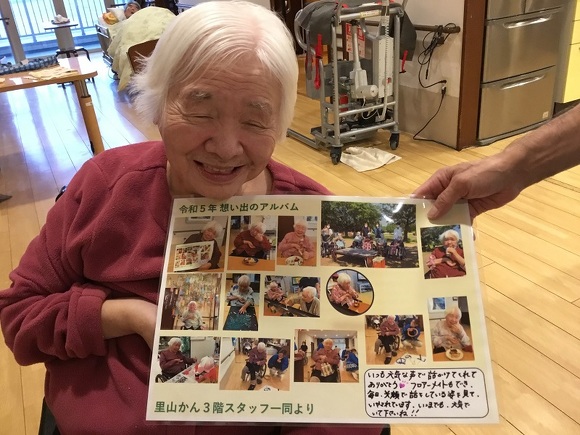 令和５年 想い出のアルバム
いつも大きな声で話かけてくれて
ありがとう♥ フロアーメイトもでき、
毎日、笑顔で話をしている姿を見て、
いやされています。いつまでも、元気で
いて下さいね!!
里山かん３階スタッフ一同より